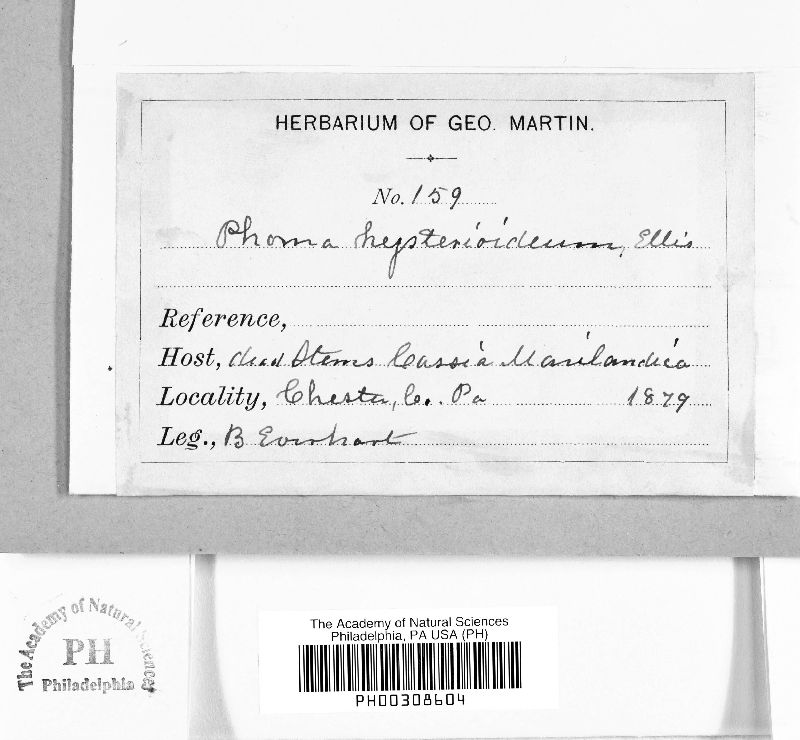 HERBARIUM OF GEO. MARTIN.
No. 159
Phoma hysterioideum, Ellis
Reference,
Host, dead Stems Cassia Marilandica
Locality, Chester, Co. Pa 1879
Leg., B Everhart
The Academy of Natural Sciences
PH
Philadelphia
The Academy of Natural Sciences
Philadelphia, PA USA (PH)
PH00308604